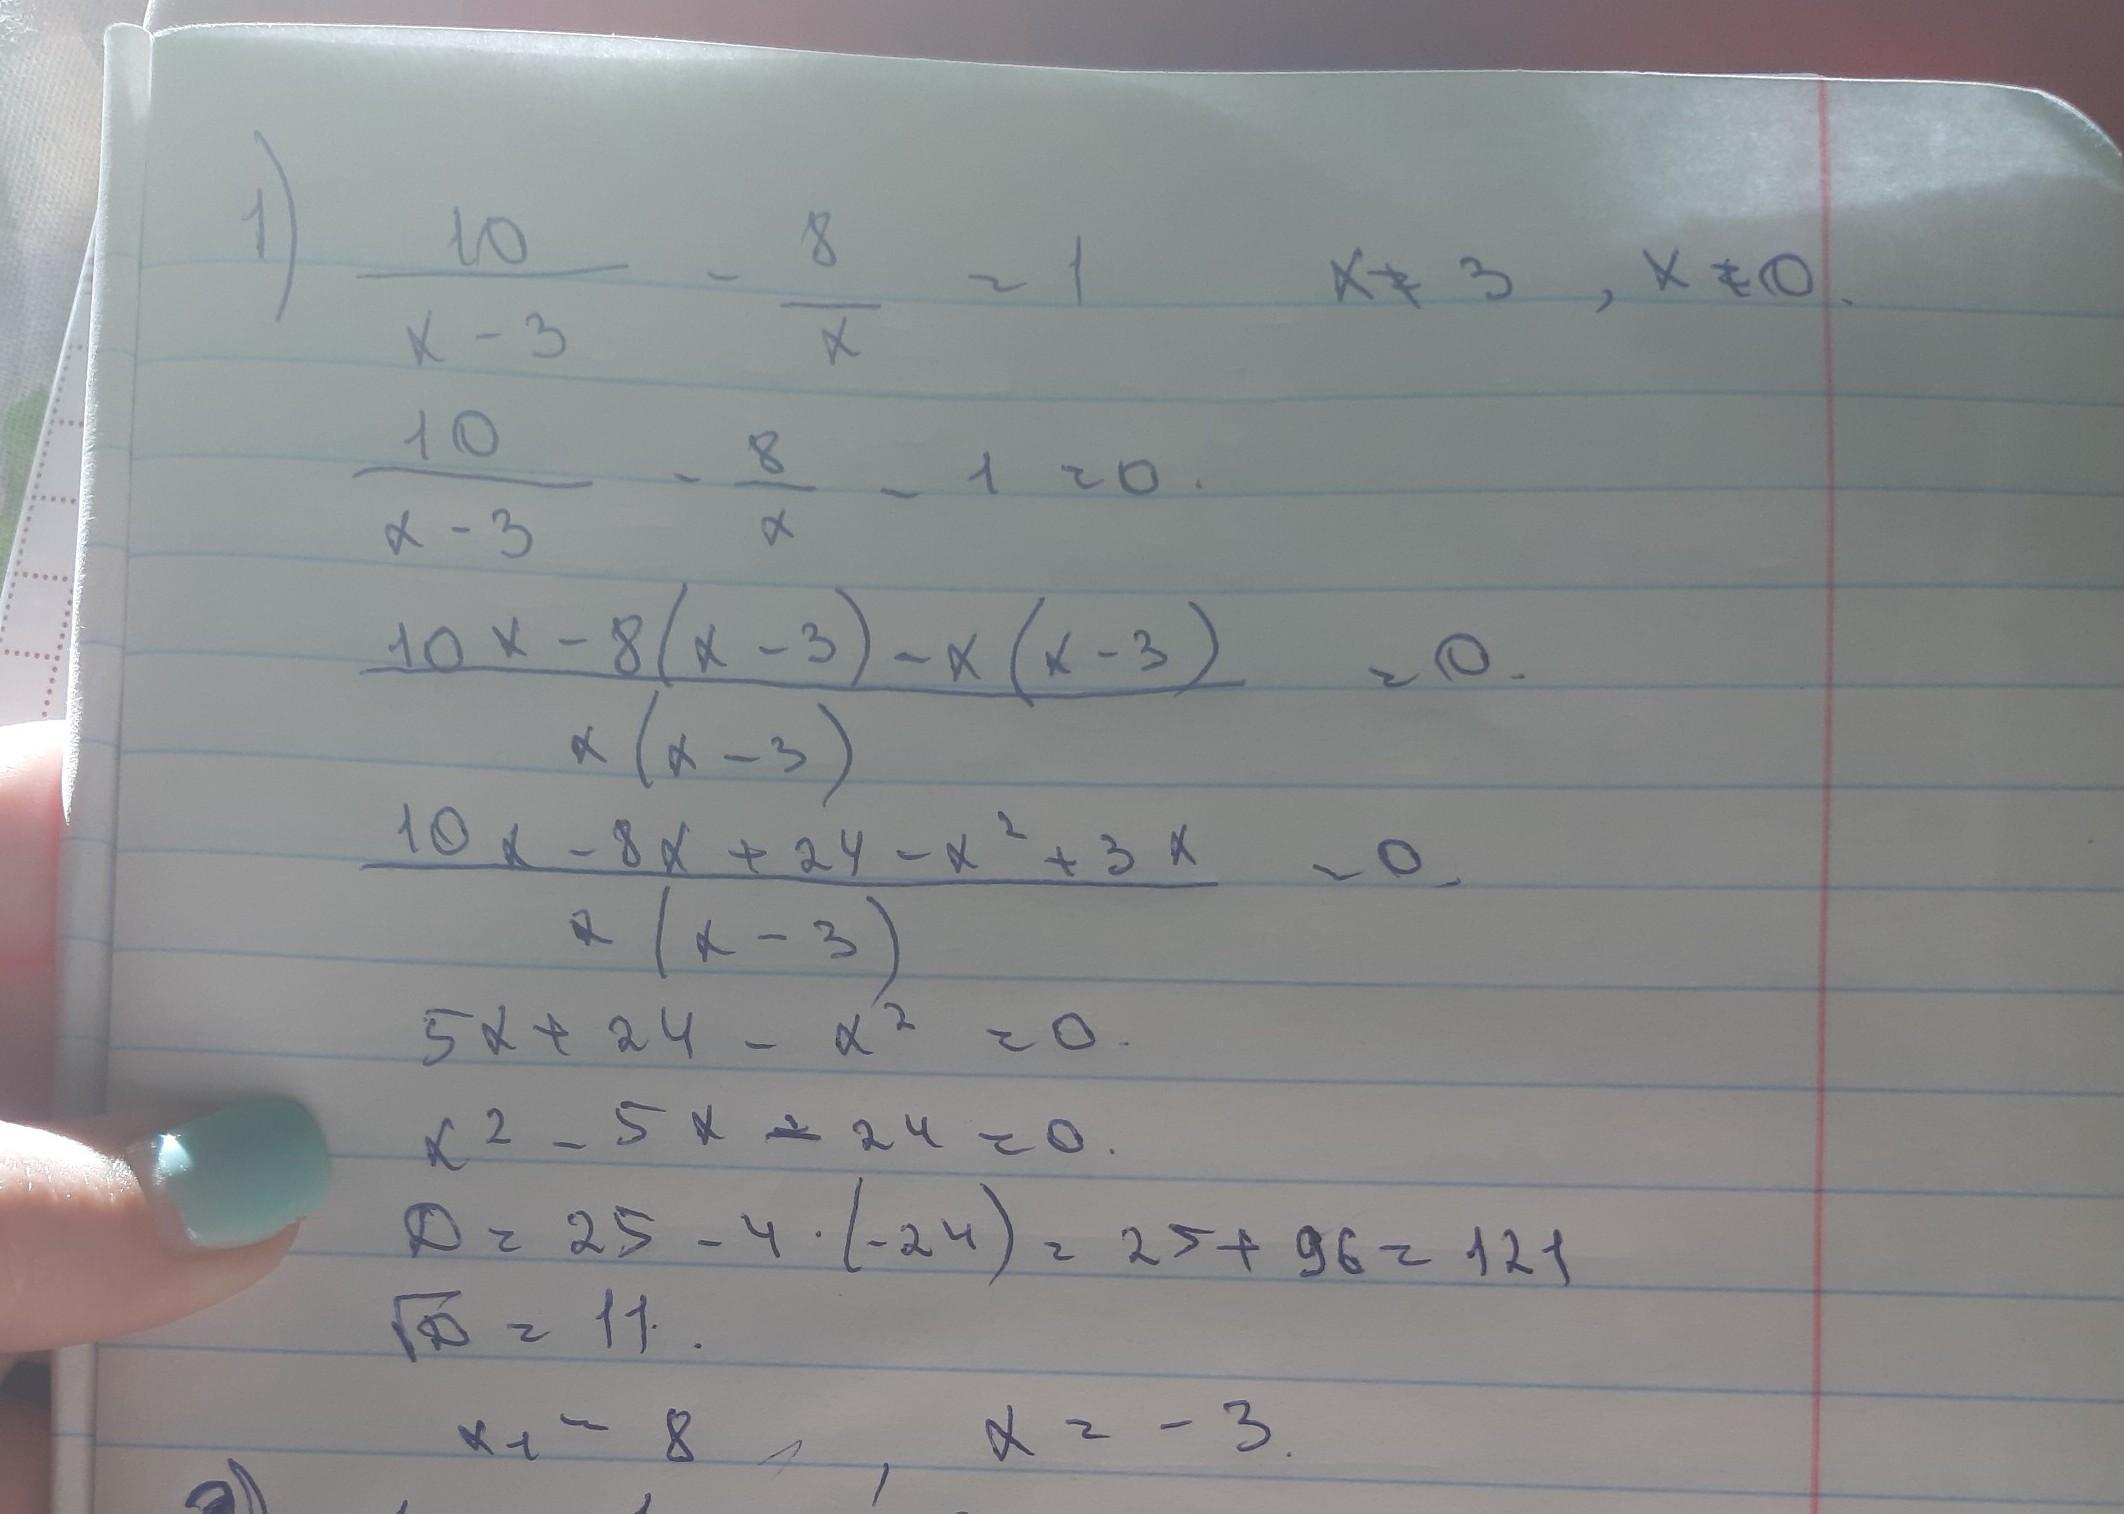 1) 10/(x-3) - 8/x = 1    x ≠ 3 , x ≠ 0.
10/(x-3) - 8/x - 1 = 0.
(10x - 8(x-3) - x(x-3))/(x(x-3)) = 0.
(10x - 8x + 24 - x² + 3x)/(x(x-3)) = 0.
5x + 24 - x² = 0.
x² - 5x - 24 = 0.
D = 25 - 4·(-24) = 25 + 96 = 121
√D = 11.
x₁ = 8 , x = -3.
2)